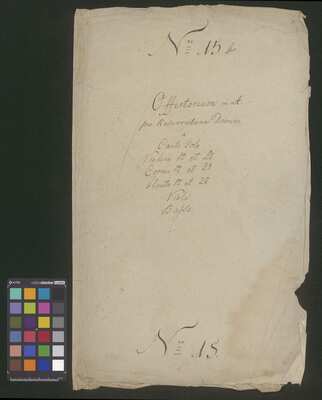 Nro 15
Offertorium in A
pro Resurrectione Domini
a
Canto Solo
Violin 1o et 2do
Cornu 1o et 2do
Flauto 1o et 2do
Viola
Basso.
Nro 15.